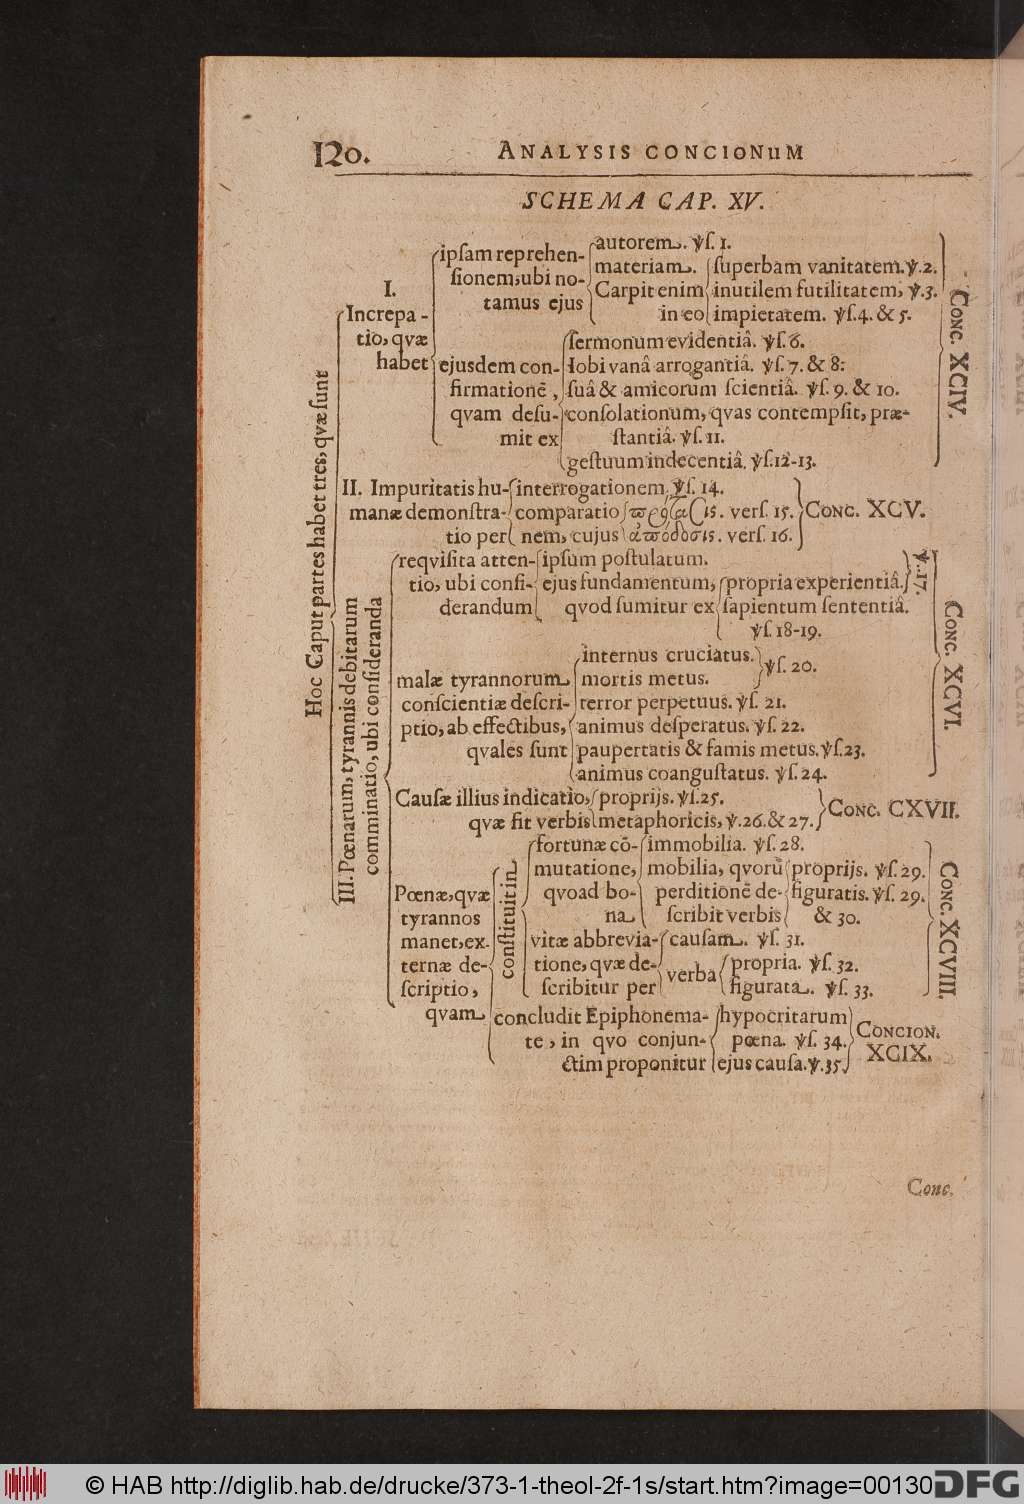 120.
ANALYSIS CONCIONuM
SCHEMA CAP. XV.
Hoc Caput partes habet tres, qvæ ſunt
I.
Increpa-
tio, qvæ
habet
ipſam reprehen-
ſionem, ubi no-
tamus ejus
autorem. ꝟſ. 1.
materiam.
Carpit enim
in eo
ſuperbam vanitatem. ꝟ. 2.
inutilem futilitatem, ꝟ. 3.
impietatem. ꝟſ. 4. & 5.
ejusdem con-
firmationẽ,
qvam deſu-
mit ex
ſermonum evidentiâ. ꝟſ. 6.
Iobi vanâ arrogantiâ. ꝟſ. 7. & 8.
ſuâ & amicorum ſcientiâ. ꝟſ. 9. & 10.
conſolationum, qvas contempſit, præ-
ſtantiâ. ꝟſ. 11.
geſtuum indecentiâ. ꝟſ. 12-13.
CONC. XCIV.
II. Impuritatis hu-
manæ demonſtra-
tio per
interrogationem. ꝟſ. 14.
comparatio
nem, cujus
πρότασις. verſ. 15.
ἀπόδοσις. verſ. 16.
CONC. XCV.
III. Pœnarum, tyrannis debitarum
comminatio, ubi conſideranda
reqviſita atten-
tio, ubi conſi-
derandum
ipſum poſtulatum.
ejus fundamentum,
qvod ſumitur ex
propria experientiâ.
ꝟ. 17.
ſapientum ſententiâ.
ꝟſ. 18-19.
malæ tyrannorum
conſcientiæ deſcri-
ptio, ab effectibus,
qvales ſunt
internus cruciatus.
mortis metus.
ꝟſ. 20.
terror perpetuus. ꝟſ. 21.
animus deſperatus. ꝟſ. 22.
paupertatis & famis metus. ꝟſ. 23.
animus coanguſtatus. ꝟſ. 24.
CONC. XCVI.
Cauſæ illius indicatio,
qvæ fit verbis
proprijs. ꝟſ. 25.
metaphoricis, ꝟ. 26. & 27.
CONC. CXVII.
Pœnæ, qvæ
tyrannos
manet, ex-
ternæ de-
ſcriptio,
qvam
conſtituit in
fortunæ cõ-
mutatione,
qvoad bo-
na
immobilia. ꝟſ. 28.
mobilia, qvorũ
perditionẽ de-
ſcribit verbis
proprijs. ꝟſ. 29.
figuratis. ꝟſ. 29.
& 30.
vitæ abbrevia-
tione, qvæ de-
ſcribitur per
cauſam. ꝟſ. 31.
verba
propria. ꝟſ. 32.
figurata. ꝟſ. 33.
CONC. XCVIII.
concludit Epiphonema-
te, in qvo conjun-
ctim proponitur
hypocritarum
pœna. ꝟſ. 34.
ejus cauſa. ꝟ. 35.
CONCION.
XCIX.
Conc.
© HAB http://diglib.hab.de/drucke/373-1-theol-2f-1s/start.htm?image=00130
DFG